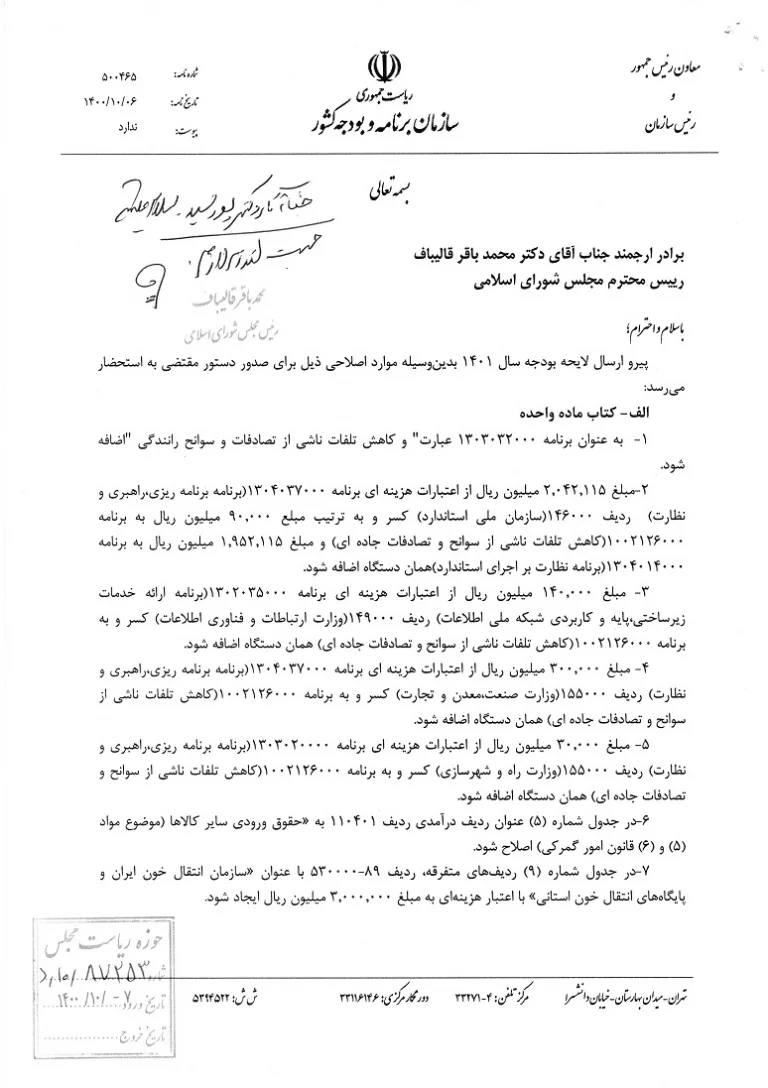 معاون رئیس جمهور
و
رئیس سازمان
ریاست جمهوری
سازمان برنامه و بودجه کشور
شماره نامه: ۵۰۰۴۶۵
تاریخ نامه: ۱۴۰۰/۱۰/۰۶
پیوست: ندارد
بسمه تعالی
جهت اقدام لازم.
محمد باقر قالیباف
رئیس مجلس شورای اسلامی
برادر ارجمند جناب آقای دکتر محمد باقر قالیباف
رییس محترم مجلس شورای اسلامی
باسلام و احترام؛
پیرو ارسال لایحه بودجه سال ۱۴۰۱ بدین‌وسیله موارد اصلاحی ذیل برای صدور دستور مقتضی به استحضار
می‌رسد:
الف- کتاب ماده واحده
۱- به عنوان برنامه ۱۳۰۳۰۳۲۰۰۰ عبارت" و کاهش تلفات ناشی از تصادفات و سوانح رانندگی "اضافه
شود.
۲-مبلغ ۲,۰۴۲,۱۱۵ میلیون ریال از اعتبارات هزینه ای برنامه ۱۳۰۴۰۳۷۰۰۰(برنامه برنامه ریزی،راهبری و
نظارت) ردیف ۱۴۶۰۰۰(سازمان ملی استاندارد) کسر و به ترتیب مبلغ ۹۰,۰۰۰ میلیون ریال به برنامه
۱۰۰۲۱۲۶۰۰۰(کاهش تلفات ناشی از سوانح و تصادفات جاده ای) و مبلغ ۱,۹۵۲,۱۱۵ میلیون ریال به برنامه
۱۳۰۴۰۱۴۰۰۰(برنامه نظارت بر اجرای استاندارد)همان دستگاه اضافه شود.
۳- مبلغ ۱۴۰,۰۰۰ میلیون ریال از اعتبارات هزینه ای برنامه ۱۳۰۲۰۳۵۰۰۰(برنامه ارائه خدمات
زیرساختی،پایه و کاربردی شبکه ملی اطلاعات) ردیف ۱۴۹۰۰۰(وزارت ارتباطات و فناوری اطلاعات) کسر و به
برنامه ۱۰۰۲۱۲۶۰۰۰(کاهش تلفات ناشی از سوانح و تصادفات جاده ای) همان دستگاه اضافه شود.
۴- مبلغ ۳۰۰,۰۰۰ میلیون ریال از اعتبارات هزینه ای برنامه ۱۳۰۴۰۳۷۰۰۰(برنامه برنامه ریزی،راهبری و
نظارت) ردیف ۱۵۵۰۰۰(وزارت صنعت،معدن و تجارت) کسر و به برنامه ۱۰۰۲۱۲۶۰۰۰(کاهش تلفات ناشی از
سوانح و تصادفات جاده ای) همان دستگاه اضافه شود.
۵- مبلغ ۳۰,۰۰۰ میلیون ریال از اعتبارات هزینه ای برنامه ۱۳۰۳۰۲۰۰۰۰(برنامه برنامه ریزی،راهبری و
نظارت) ردیف ۱۵۵۰۰۰(وزارت راه و شهرسازی) کسر و به برنامه ۱۰۰۲۱۲۶۰۰۰(کاهش تلفات ناشی از سوانح و
تصادفات جاده ای) همان دستگاه اضافه شود.
۶-در جدول شماره (۵) عنوان ردیف درآمدی ردیف ۱۱۰۴۰۱ به «حقوق ورودی سایر کالاها (موضوع مواد
(۵) و (۶) قانون امور گمرکی) اصلاح شود.
۷-در جدول شماره (۹) ردیف‌های متفرقه، ردیف ۸۹-۵۳۰۰۰۰ با عنوان «سازمان انتقال خون ایران و
پایگاه‌های انتقال خون استانی» با اعتبار هزینه‌ای به مبلغ ۳,۰۰۰,۰۰۰ میلیون ریال ایجاد شود.
تهران-میدان بهارستان-خیابان دانشسرا مرکز تلفن: ۴-۳۳۲۷۱ دورنگار مرکزی: ۳۳۱۱۶۱۴۶ ش ش: ۵۳۹۴۵۲۲
حوزه ریاست مجلس
شماره ۸۷۲۵۳
تاریخ ورود ۱۴۰۰/۱۰/-۷
تاریخ خروج